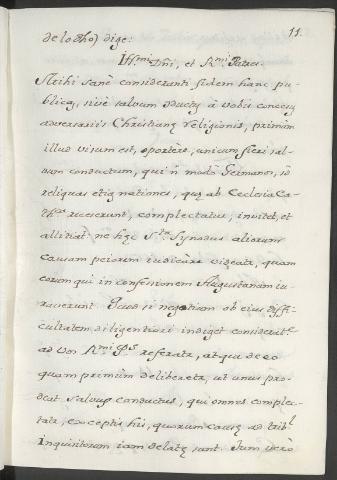 11.
de lo dho) dize:
Ill.mi Dñi, et R.mi Patres.
Mihi sanè consideranti fidem hanc pu-
blicã, sivè salvum ductũ à vobis concessũ
adversariis Christianæ religionis, primùm
illud visum est, oportère, unicum fieri sal-
vum conductum, qui ñ modò Germanos, sed
reliquas etiã nationes, quæ ab Ecclesia Ca-
th.ca recesserunt, complectatur, invitet, et
alliciat: ne hæc S.ta Synodus aliorum
causam peiorem iudicare videatr, quam
eorum qui in confessionem Augustanam iu-
raverunt. Quod si negotium ob eius diffi-
cultatem diligentiori indiget considerat.e
ad vos R.mi PP. referatr, atque de eo
quam primùm deliberetr, ut unus pro-
deat salvus conductus, qui omnes complec-
tatr, exceptis his, quorum causæ ad trib.l
Inquisitorum iam delatæ sunt. Tum verò